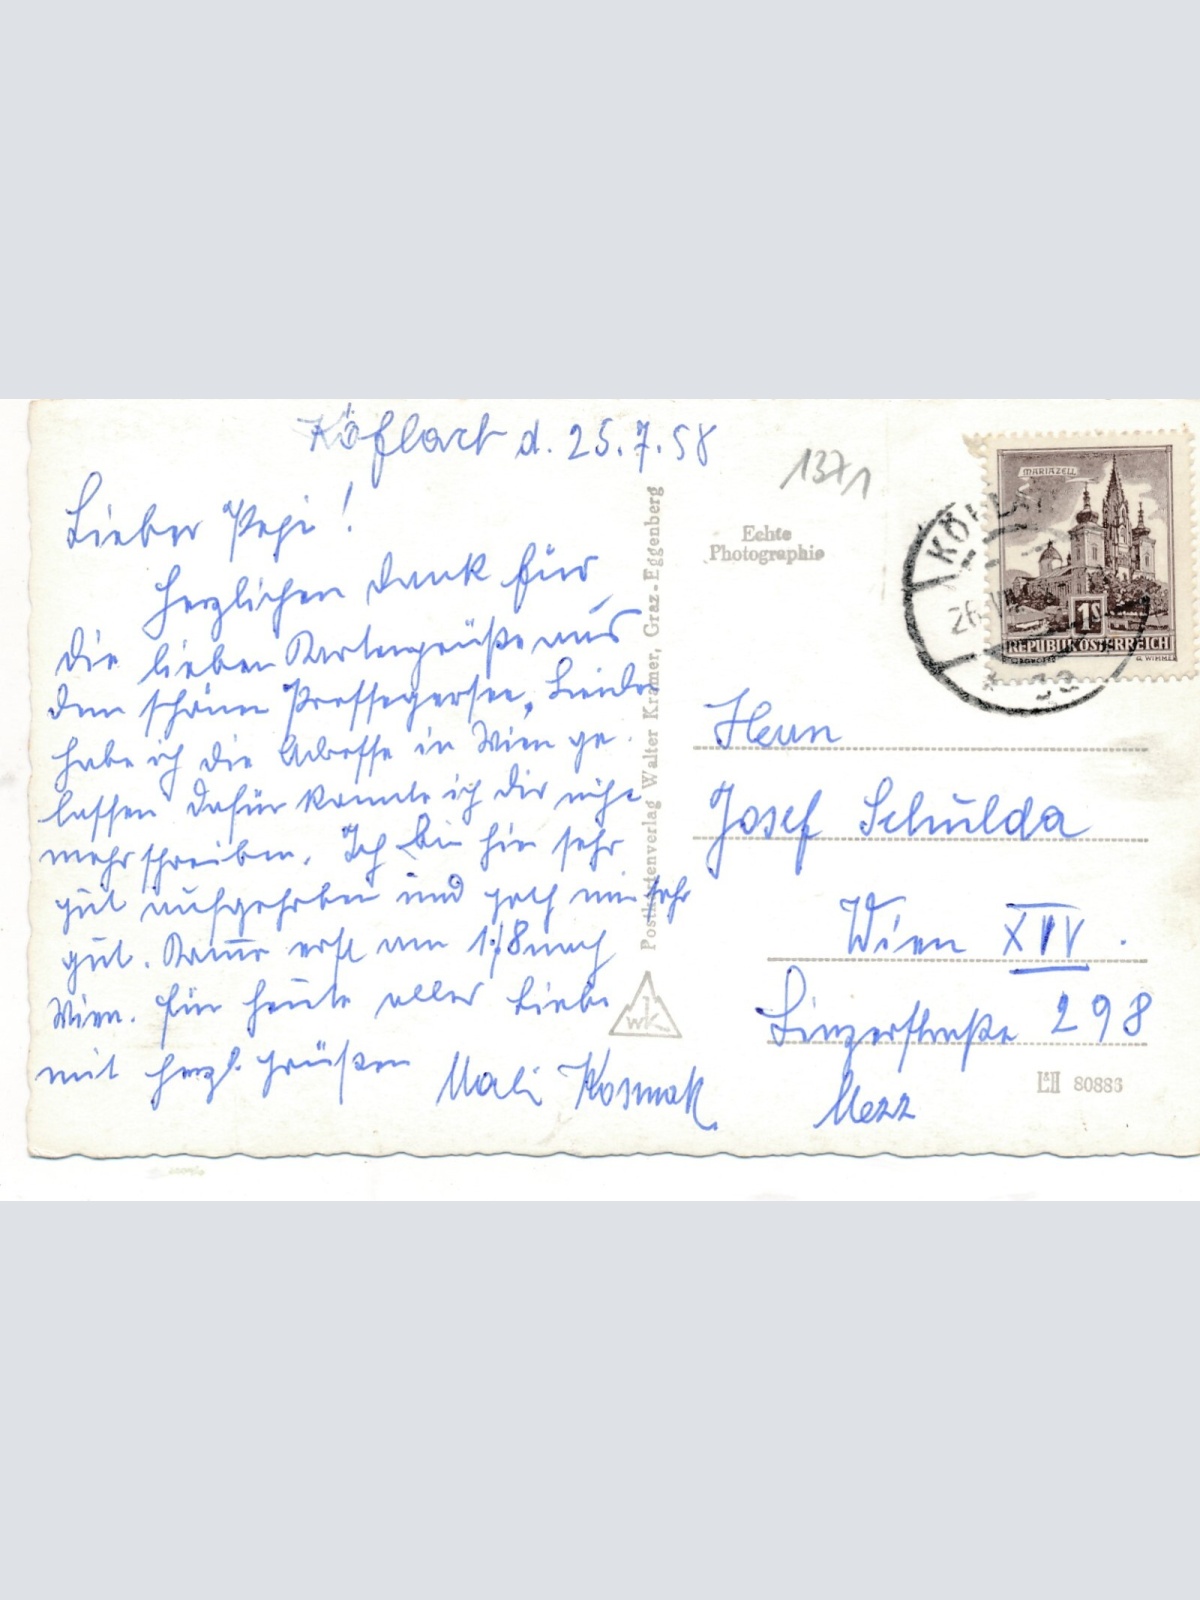 Köflach d. 25.7.58
Lieber Pepi!
Herzlichen Dank für
die lieben Kartengrüße aus
dem schönen Pressegersee, Leider
habe ich die Adresse in Wien ge-
lassen dafür konnte ich dir nicht
mehr schreiben. Ich bin hier sehr
gut aufgehoben und geth mir sehr
gut. Komme erst am 1/8 nach
Wien. Für heute alles Liebe
mit herzl. Grüßen
Mali Kosmak
Postkartenverlag Walter Kramer, Graz-Eggenberg
WK
1371
Echte
Photographie
MARIAZELL
1S
REPUBLIK ÖSTERREICH
G. WIMMER
KÖFLACH
26. VII.
Herrn
Josef Schulda
Wien XIV.
Linzerstraße 298
Mezz
LII 80886